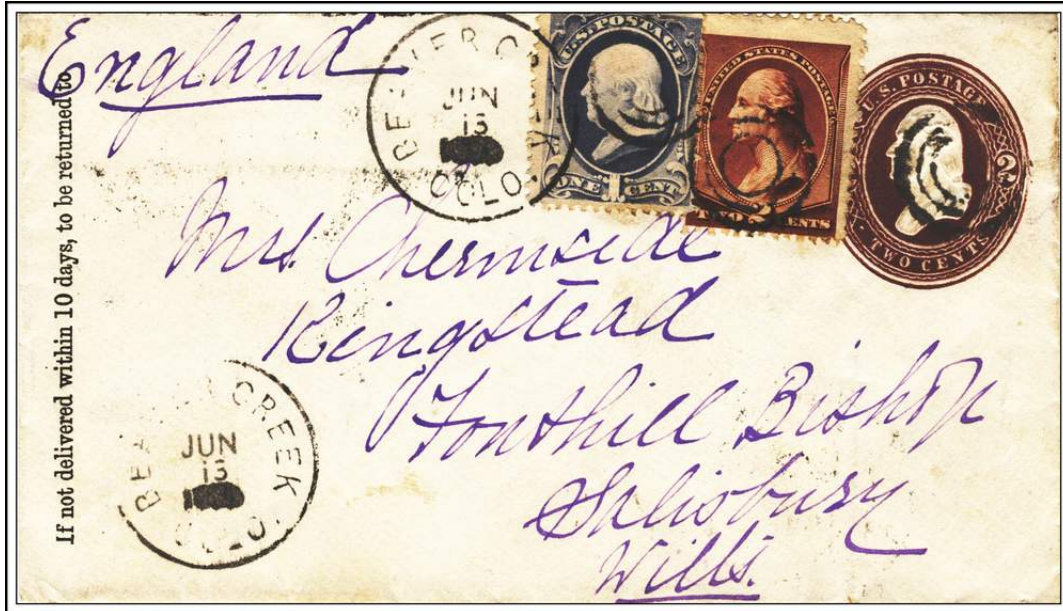 England
If not delivered within 10 days, to be returned to
BEAVER CREEK
JUN
13
COLO.
U.S. POSTAGE
ONE 1 CENT
UNITED STATES POSTAGE
TWO 2 CENTS
U.S. POSTAGE
2
TWO CENTS
Mrs. Chermside
Kingstead
Fonthill Bishop
Salisbury
Wilts.
BEAVER CREEK
JUN
13
COLO.